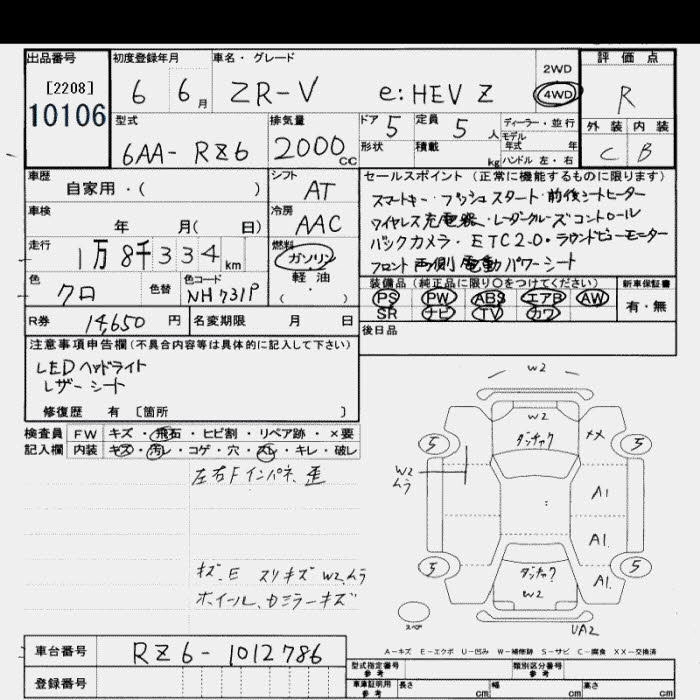 出品番号 初度登録年月 車名・グレード 評価点
[2208]
10106
6 6月 ZR-V e:HEV Z
2WD
4WD
R
型式 6AA-RZ6 排気量 2000cc
ドア 5 定員 5人 ディーラー・並行
モデル年式 年
形状 積載 kg ハンドル 左・右
外装 内装
C B
車歴 自家用・( ) シフト AT
車検 年 月( 日) 冷房 AAC
走行 1万8千334km 燃料 ガソリン
軽油
・( )
色 クロ 色替 色コード NH731P
R券 14,650円 名変期限 月 日
セールスポイント(正常に機能するものに限ります)
スマートキー・プッシュスタート・前後シートヒーター
ワイヤレス充電器・レーダークルーズコントロール
バックカメラ・ETC2.0・ラウンドビューモニター
フロント両側電動パワーシート
装備品(純正品に限り○をつけてください) 新車保証書
PS PW ABS エアB AW
SR ナビ TV カワ
有・無
後日品
注意事項申告欄(不具合内容等は具体的に記入して下さい)
LEDヘッドライト
レザーシート
修復歴 有 [箇所 ]
検査員 FW キズ・飛石・ヒビ割・リペア跡・×要
記入欄 内装 キズ・汚レ・コゲ・穴・スレ・キレ・破レ
左右Fインパネ、歪
キズ、E スリキズ W2ムラ
ホイール、カミラーキズ
W2
W2
ダッチャク
5 XX 5
W2
ムラ
A1
A1
A1
5 5
ダッチャク
W2
スペア
UA2
A-キズ E-エクボ U-凹み W-補修跡 S-サビ C-腐食 XX-交換済
車台番号 RZ6-1012786
登録番号
型式指定番号 参考 類別区分番号 参考
車庫証明用 参考 長さ cm 幅 cm 高さ cm